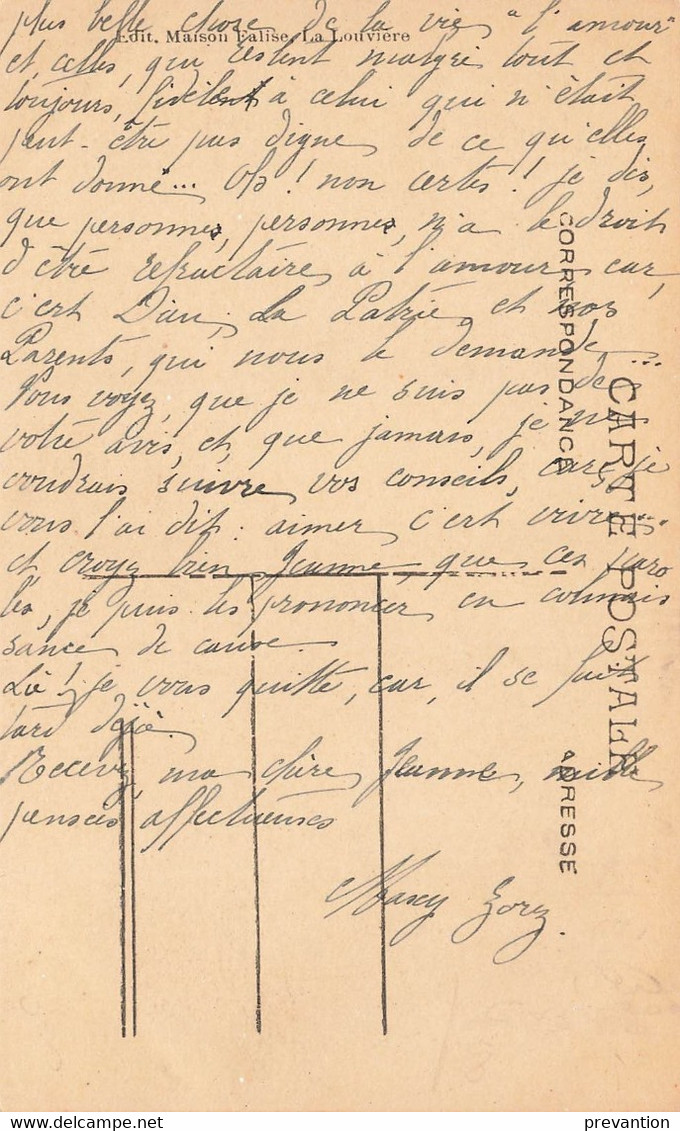 plus belle chose de la vie "l'amour"
Edit. Maison Falise, La Louvière
et, celles, qui restent malgré tout et
toujours, fidèlent à celui qui n'était
peut-être pas digne de ce qu'elles
ont donné... Oh! non certes! je dis,
que personnes, personnes, n'a le droit
d'être refractaire à l'amour car,
c'est Dieu, La Patrie, et nos
Parents, qui nous le demande...
Vous voyez, que je ne suis pas de
votre avis, et, que jamais, je ne
voudrais suivre vos conseils, car, je
vous l'ai dit: aimer c'est vivre...
et croyez bien Jeanne que ces paro
les, je puis les prononcer en connais
sance de cause.
Là! je vous quitte, car, il se fait
tard déjà.
Recevez, ma chère Jeanne, mille
pensées affectueuses
CARTE POSTALE
CORRESPONDANCE
ADRESSE
delcampe.net
prevantion